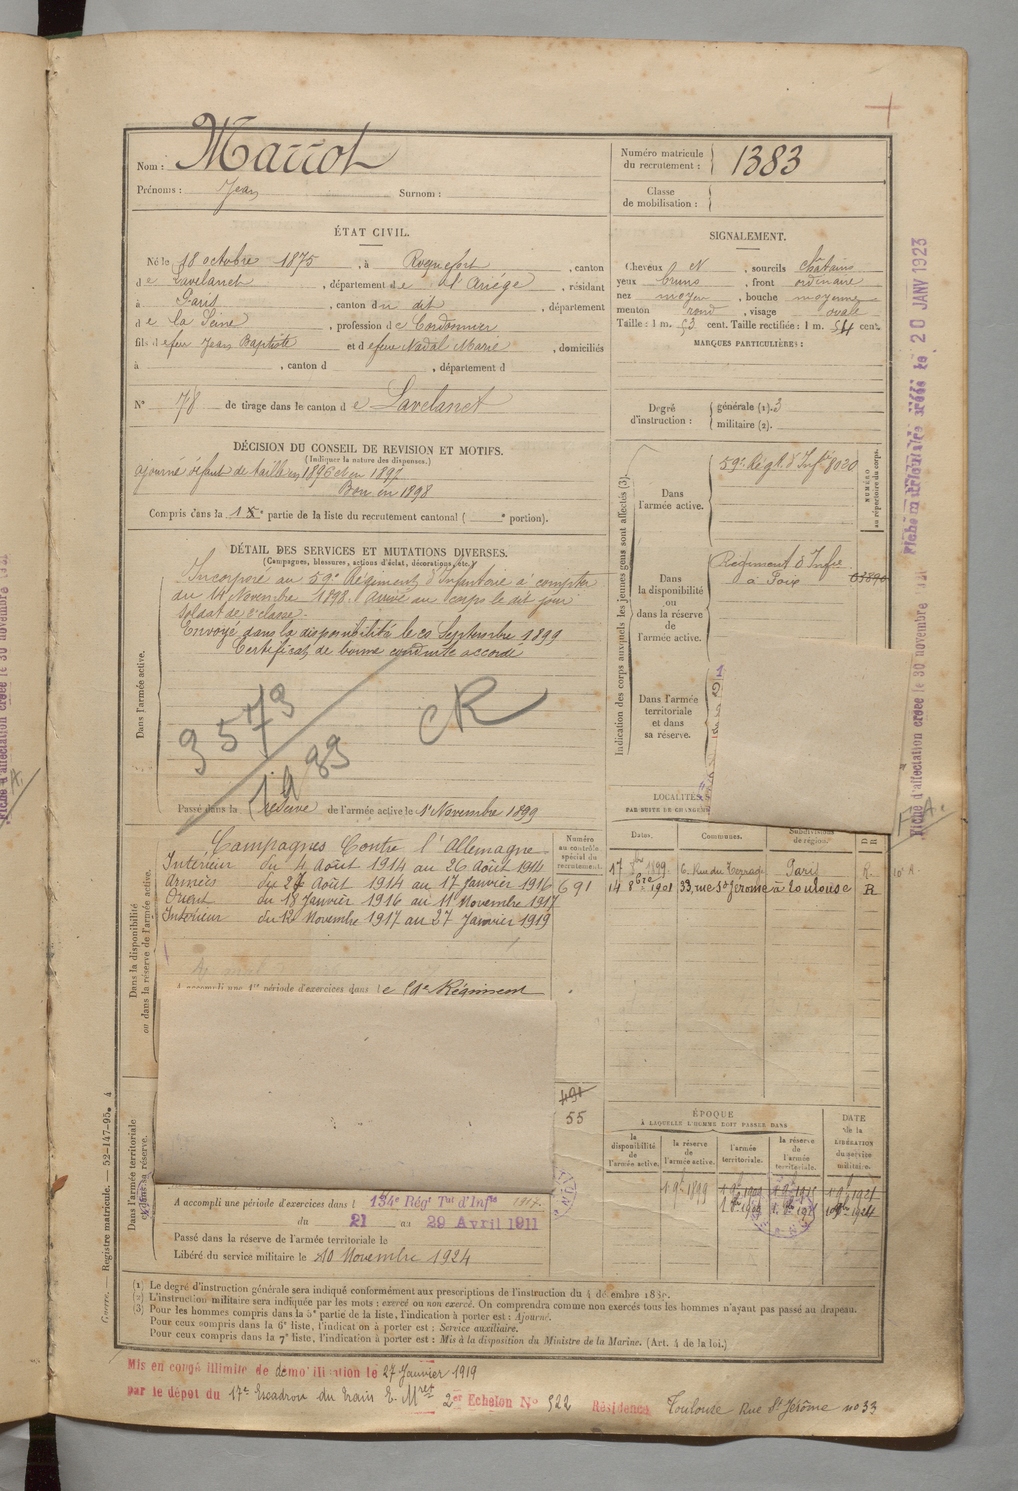 Nom : Marrot
Prénoms : Jean Surnom :
Numéro matricule du recrutement : 1383
Classe de mobilisation :
ÉTAT CIVIL.
Né le 18 octobre 1875, à Roquefort, canton
de Lavelanet, département de l'Ariège, résidant
à Paris, canton du dit, département
de la Seine, profession de Cordonnier
fils de feu Jean Baptiste et de feue Nadal Marie, domiciliés
à , canton d , département d
N° 78 de tirage dans le canton de Lavelanet
SIGNALEMENT.
Cheveux ch N, sourcils châtains
yeux bruns, front ordinaire
nez moyen, bouche moyenne
menton rond, visage ovale
Taille : 1 m. 53 cent. Taille rectifiée : 1 m. 54 cent.
MARQUES PARTICULIÈRES :
Degré d'instruction : générale (1). 3
militaire (2).
DÉCISION DU CONSEIL DE REVISION ET MOTIFS.
(Indiquer la nature des dispenses.)
ajourné défaut de taille en 1896 et en 1897
Bon en 1898
Compris dans la 1e partie de la liste du recrutement cantonal ( e portion).
DÉTAIL DES SERVICES ET MUTATIONS DIVERSES.
(Campagnes, blessures, actions d'éclat, décorations, etc.)
Dans l'armée active.
Incorporé au 59e Régiment d'Infanterie à compter
du 14 Novembre 1898. Arrivé au corps le dit jour
soldat de 2e classe.
Envoyé dans la disponibilité le 20 Septembre 1899
Certificat de bonne conduite accordé
3573
1933
CR
Passé dans la réserve de l'armée active le 1er Novembre 1899
Indication des corps auxquels les jeunes gens sont affectés (3).
Dans l'armée active.
59e Régt d'Infie 8020
NUMÉRO au répertoire du corps.
Dans la disponibilité ou dans la réserve de l'armée active.
Régiment d'Infie
à Foix
Dans l'armée territoriale et dans sa réserve.
LOCALITÉS
PAR SUITE DE CHANGE
Dates. Communes. Subdivisions de région. D R
17 7bre 1899. 6. Rue du Terrage Paris R.
14 9bre 1901 33, rue St Jérôme à Toulouse R
Dans la disponibilité ou dans la réserve de l'armée active.
Numéro au contrôle spécial du recrutement.
691
Campagnes Contre l'Allemagne
Intérieur du 4 Août 1914 au 26 Août 1914
Armées du 27 Août 1914 au 17 Janvier 1916
Orient du 18 Janvier 1916 au 11 Novembre 1917
Intérieur du 12 Novembre 1917 au 27 Janvier 1919
A accompli une 1re période d'exercices dans le 59e Régiment
491
55
Dans l'armée territoriale et dans sa réserve.
A accompli une période d'exercices dans l 134e Régt Tal d'Infie
du 21 au 29 Avril 1911
Passé dans la réserve de l'armée territoriale le
Libéré du service militaire le 10 Novembre 1924
ÉPOQUE
À LAQUELLE L'HOMME DOIT PASSER DANS
la disponibilité de l'armée active. la réserve de l'armée active. l'armée territoriale. la réserve de l'armée territoriale.
DATE de la LIBÉRATION du service militaire.
(1) Le degré d'instruction générale sera indiqué conformément aux prescriptions de l'instruction du 4 décembre 1889.
(2) L'instruction militaire sera indiquée par les mots : exercé ou non exercé. On comprendra comme non exercés tous les hommes n'ayant pas passé au drapeau.
(3) Pour les hommes compris dans la 5e partie de la liste, l'indication à porter est : Ajourné.
Pour ceux compris dans la 6e liste, l'indication à porter est : Service auxiliaire.
Pour ceux compris dans la 7e liste, l'indication à porter est : Mis à la disposition du Ministre de la Marine. (Art. 4 de la loi.)
Guerre. — Registre matricule. — 52-147-95. 4
Mis en congé illimité de démobilisation le 27 Janvier 1919
par le dépôt du 17e Escadron du train E. Mres 2er Echelon No 522 Résidence Toulouse Rue St Jérôme no 33
Fiche matriculaire créée le 20 JANV 1923
Fiche d'affectation créée le 30 novembre
F. A.